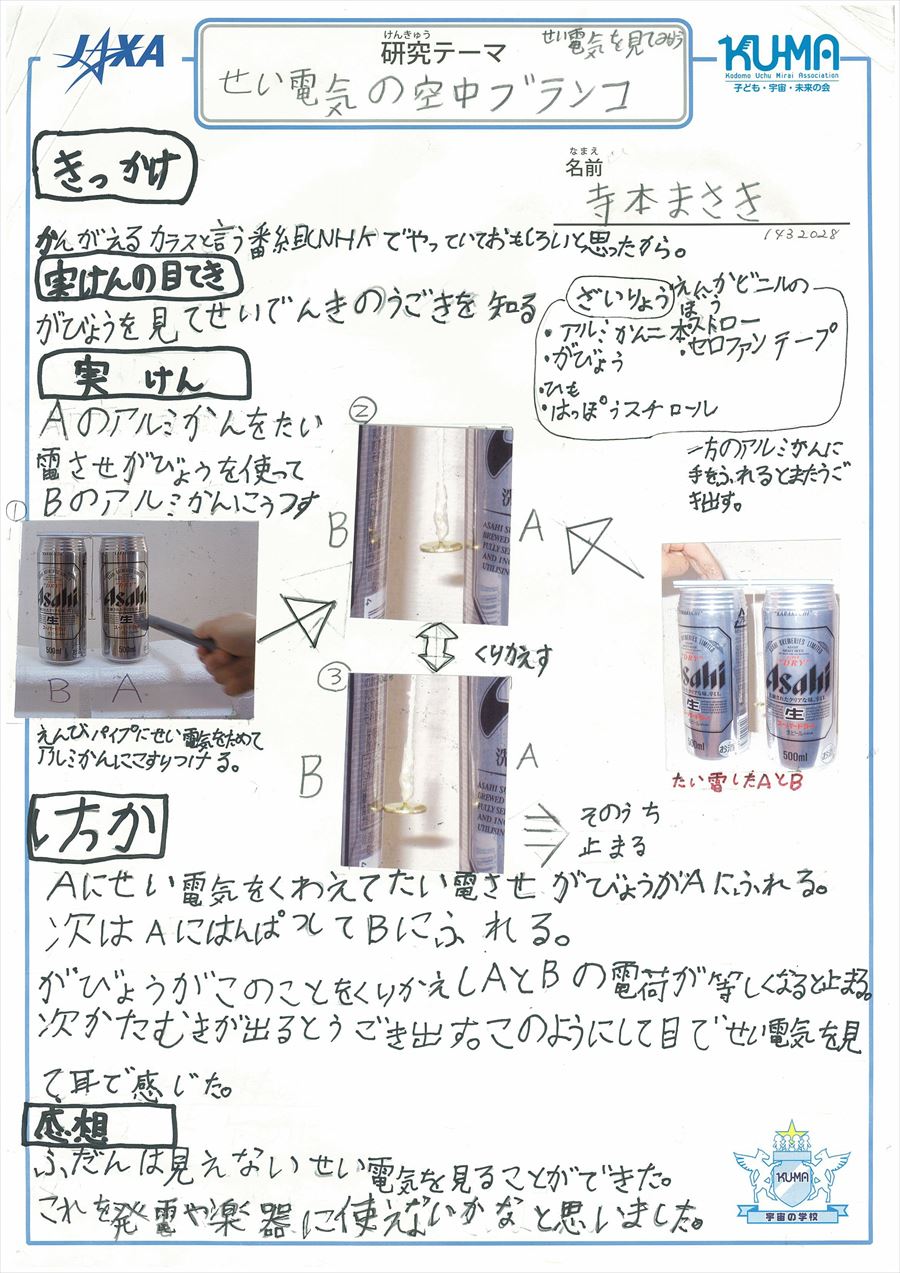 JAXA
けんきゅう
研究テーマ
せい電気を見てみよう
せい電気の空中ブランコ
KU-MA
Kodomo Uchu Mirai Association
子ども・宇宙・未来の会
きっかけ
なまえ
名前
寺本まさき
1432028
かんがえるカラスと言う番組(NHK)でやっていておもしろいと思ったから。
実けんの目てき
がびょうを見てせいでんきのうごきを知る
ざいりょう
えんかビニルの
ぼう
・アルミかん二本
ストロー
・がびょう
・セロファンテープ
・ひも
・はっぽうスチロール
実けん
Aのアルミかんをたい
電させがびょうを使って
Bのアルミかんにうつす
一方のアルミかんに
手をふれるとまたうご
き出す。
①
B A
えんびパイプにせい電気をためて
アルミかんにこすりつける。
②
B
A
くりかえす
③
B
A
そのうち
止まる
Asahi
生
500ml
Asahi
生
500ml
ASAHI
BREWED
FULLY
AND IN
UTILISIN
Asahi
生
500ml
"DRY"
Asahi
生
500ml
たい電したAとB
けっか
Aにせい電気をくわえてたい電させ がびょうがAにふれる。
次はAにはんぱつしてBにふれる。
がびょうがこのことをくりかえしAとBの電荷が等しくなると止まる。
次かたむきが出るとうごき出す。このようにして目でせい電気を見
て耳で感じた。
感想
ふだんは見えないせい電気を見ることができた。
これを発電や楽器に使えないかなと思いました。
KU-MA
宇宙の学校